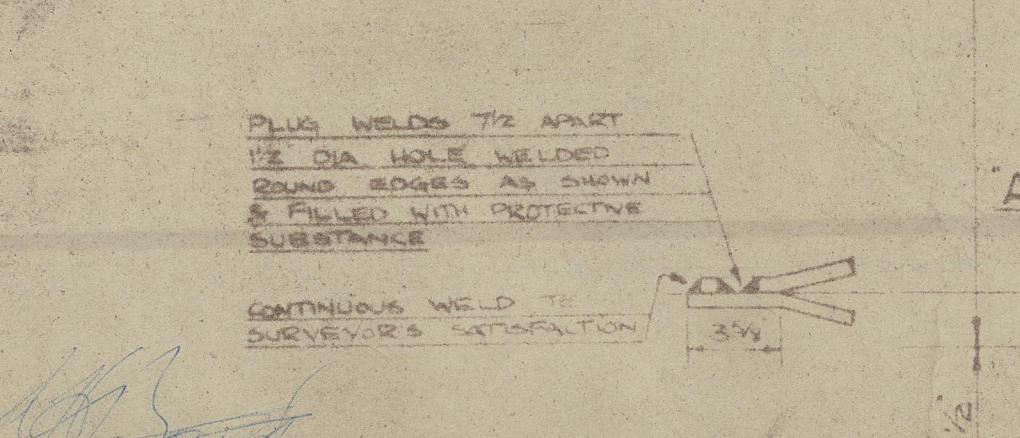 PLUG WELDS 7½ APART
1½ DIA HOLE WELDED
ROUND EDGES AS SHOWN
& FILLED WITH PROTECTIVE
SUBSTANCE
CONTINUOUS WELD TO
SURVEYOR'S SATISFACTION
3⅝
"A
½